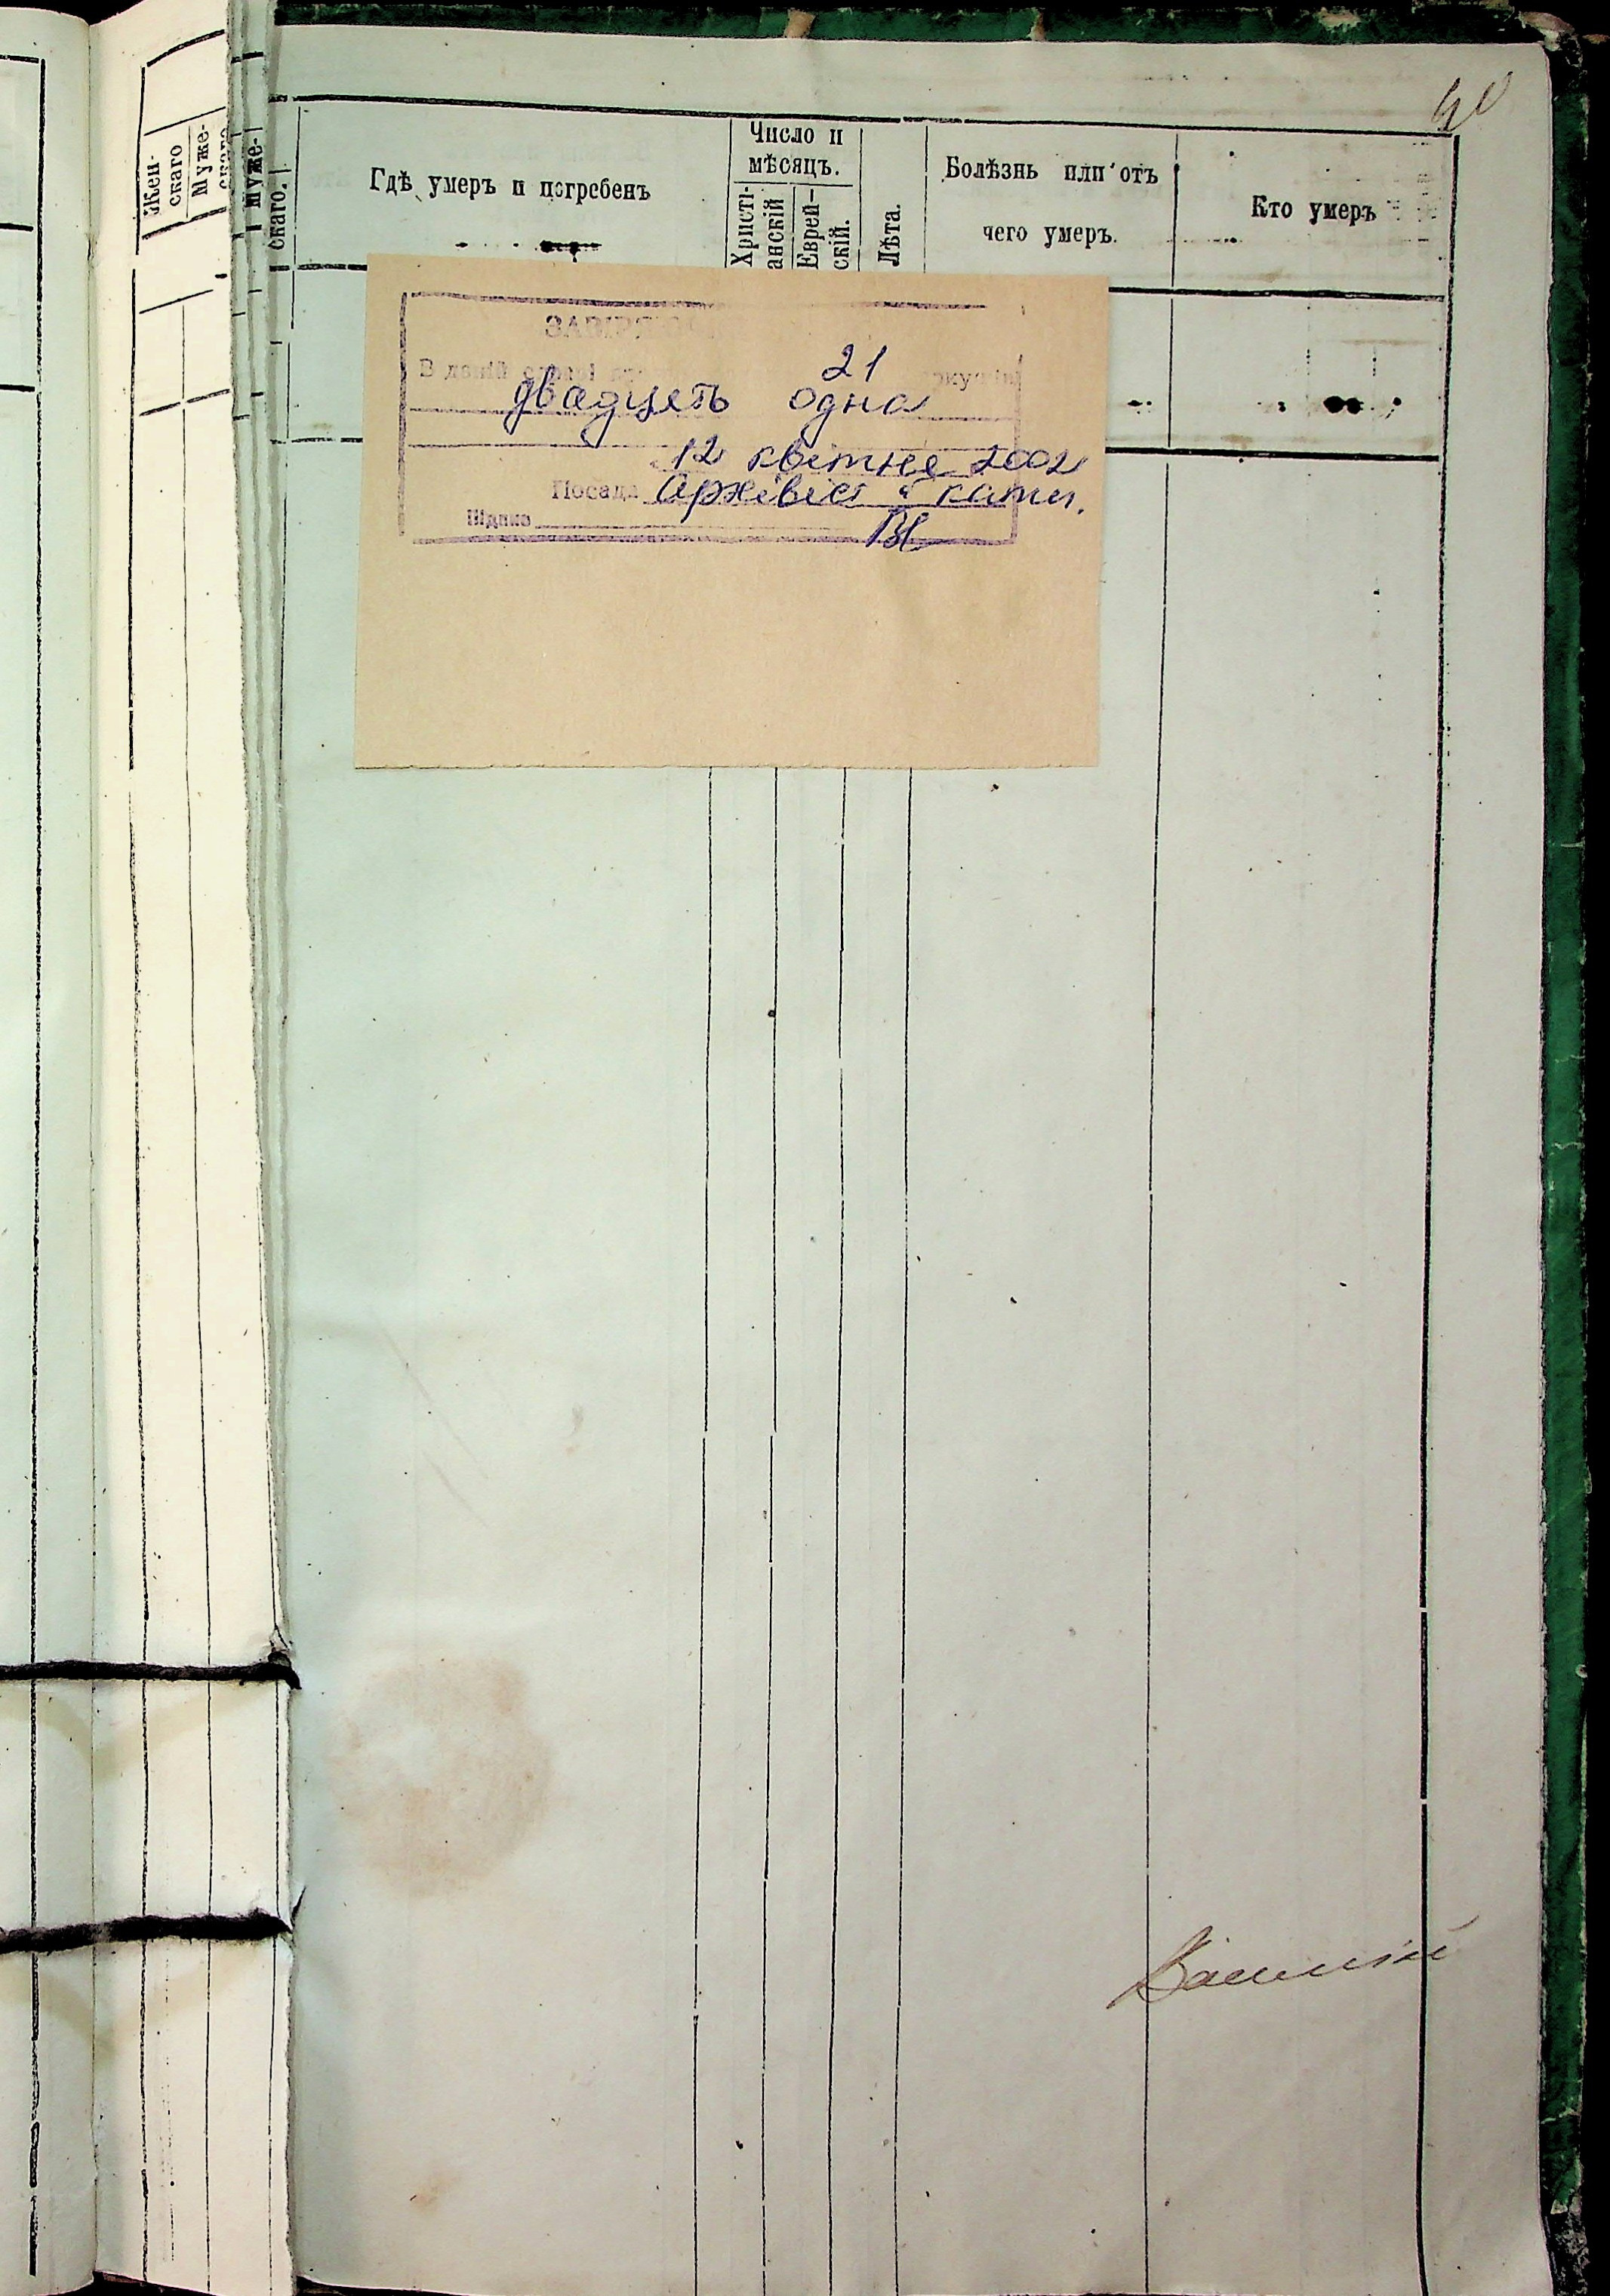 40
Жен-
скаго
Муже-
Муже-
скаго.
Гдѣ умеръ и погребенъ
Число и
мѣсяцъ.
Христі-
анскій
Еврей-
скій.
Лѣта.
Болѣзнь или отъ
чего умеръ.
Кто умеръ
В даній справі
21
двадцять одна
12 квітня 2002
Посада Архівіст II катег.
Підпис